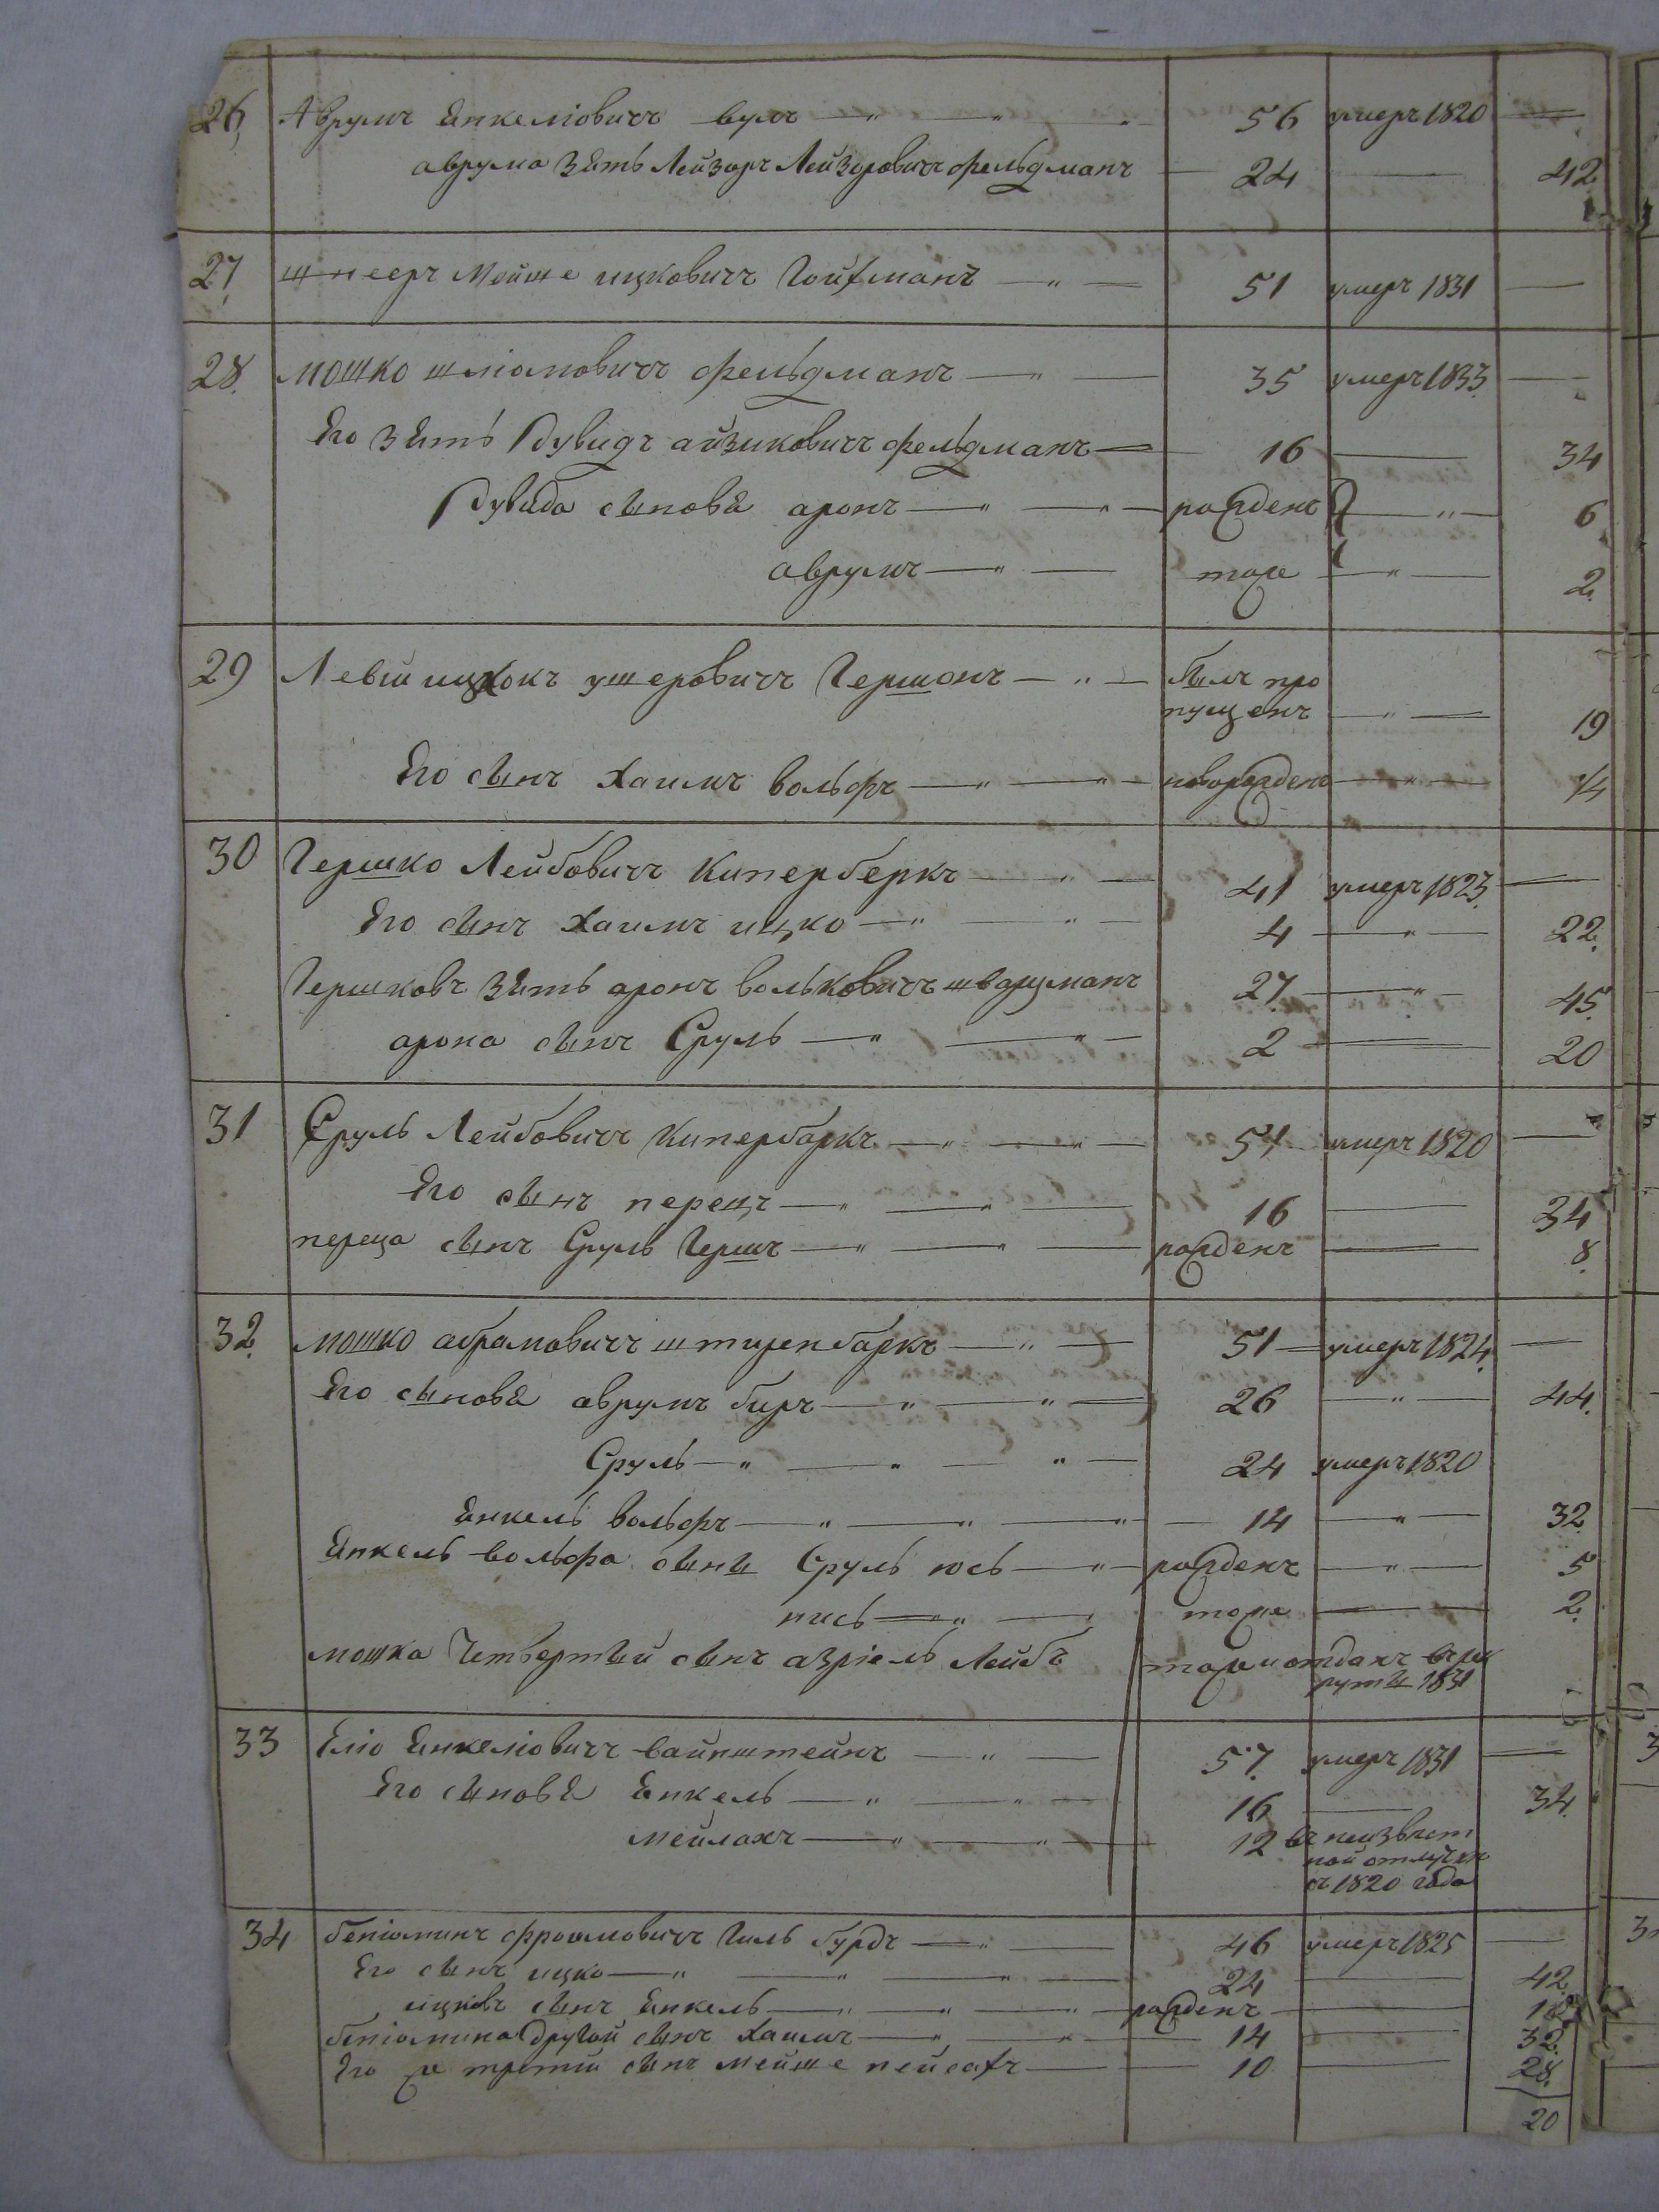 26 Аврумъ Янкеліовичъ вулъ — 56 умеръ 1820 —
аврума зять Лейзоръ Лейзоровичъ фельдманъ — 24 — 42
27 шнееръ Мойше ицковичъ Гойхманъ — 51 умеръ 1831 —
28 мошко шліомовичъ фельдманъ — 35 умеръ 1833 —
Его зять Дувидъ айзиковичъ фельдманъ — 16 — 34
Дувида сыновя аронъ — рожденъ — 6
аврумъ — тоже — 2
29 Левій ицхокъ ушеровичъ Гершонъ — былъ про
пущенъ — 19
Его сынъ Хаимъ вольфъ — новорожденъ —
30 Гершко Лейбовичъ Киперберкъ — 41 умеръ 1823 —
Его сынъ Хаимъ ицко — 4 — 22
Гершковъ зять аронъ вольковичъ шварцманъ 27 — 45
арона сынъ Сруль — 2 — 20
31 Сруль Лейбовичъ Кипербаркъ — 51 умеръ 1820 —
Его сынъ перецъ — 16 — 34
переца сынъ Сруль Гершъ — рожденъ — 8
32 мошко абрамовичъ штиренбаркъ — 51 — умеръ 1824 —
Его сыновя аврумъ биръ — 26 — 44
Сруль — 24 умеръ 1820
Янкель вольфъ — 14 — 32
Янкель вольфа сыны Сруль юсь — рожденъ — 5
нись — тоже — 2
мошка Четвертый сынъ азріель Лейбъ тоже отданъ в рек
руты 1831
33 Еліо Янкеліовичъ вайнштейнъ — 57 умеръ 1831 —
Его сыновя Янкель — 16 — 34
мейлахъ — 12 въ неизвест
ной отлучки
съ 1820 года
34 беніоминъ фроимовичъ Гиль бурдъ — 46 умеръ 1825 —
Его сынъ ицко — 24 — 42
ицковъ сынъ Янкель — рожденъ —
беніомина другой сынъ Хаимъ — 14 — 32
Его же третій сынъ мейше пейсахъ — 10 — 28
20